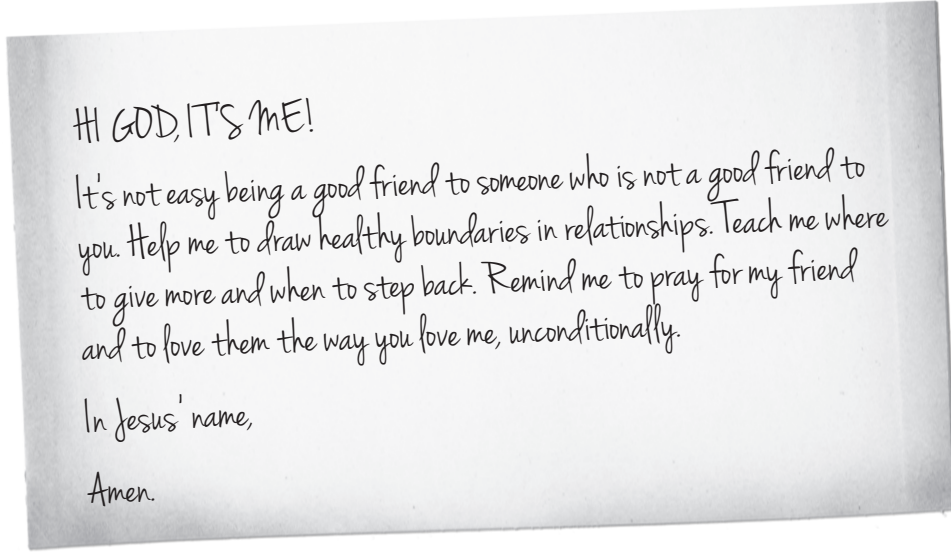 HI GOD, IT'S ME!
It's not easy being a good friend to someone who is not a good friend to
you. Help me to draw healthy boundaries in relationships. Teach me where
to give more and when to step back. Remind me to pray for my friend
and to love them the way you love me, unconditionally.
In Jesus' name,
Amen.